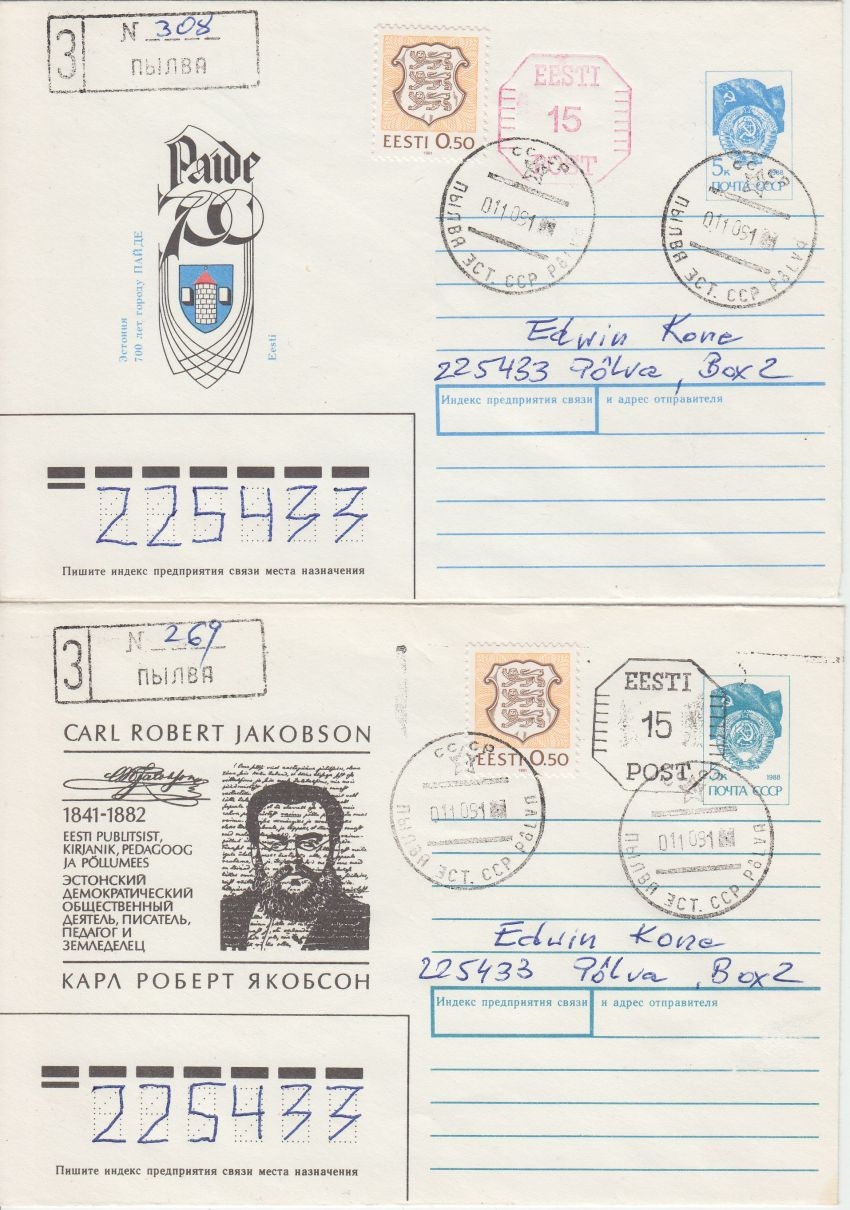 З
N 308
ПЫЛВА
EESTI 0.50
EESTI
15
POST
5к
1988
ПОЧТА СССР
Paide
700
Эстония
700 лет городу ПАЙДЕ
Eesti
СССР
011091
ПЫЛВА ЭСТ. ССР PÕLVA
СССР
011091
ПЫЛВА ЭСТ. ССР PÕLVA
Edwin Kone
225433 Põlva, Box 2
Индекс предприятия связи и адрес отправителя
225433
Пишите индекс предприятия связи места назначения
З
N 269
ПЫЛВА
EESTI 0.50
EESTI
15
POST
5к
1988
ПОЧТА СССР
CARL ROBERT JAKOBSON
1841-1882
EESTI PUBLITSIST,
KIRJANIK, PEDAGOOG
JA PÕLLUMEES
ЭСТОНСКИЙ
ДЕМОКРАТИЧЕСКИЙ
ОБЩЕСТВЕННЫЙ
ДЕЯТЕЛЬ, ПИСАТЕЛЬ,
ПЕДАГОГ И
ЗЕМЛЕДЕЛЕЦ
КАРЛ РОБЕРТ ЯКОБСОН
СССР
011091
ПЫЛВА ЭСТ. ССР PÕLVA
011091
ПЫЛВА ЭСТ. ССР PÕLVA
Edwin Kone
225433 Põlva, Box 2
Индекс предприятия связи и адрес отправителя
225433
Пишите индекс предприятия связи места назначения